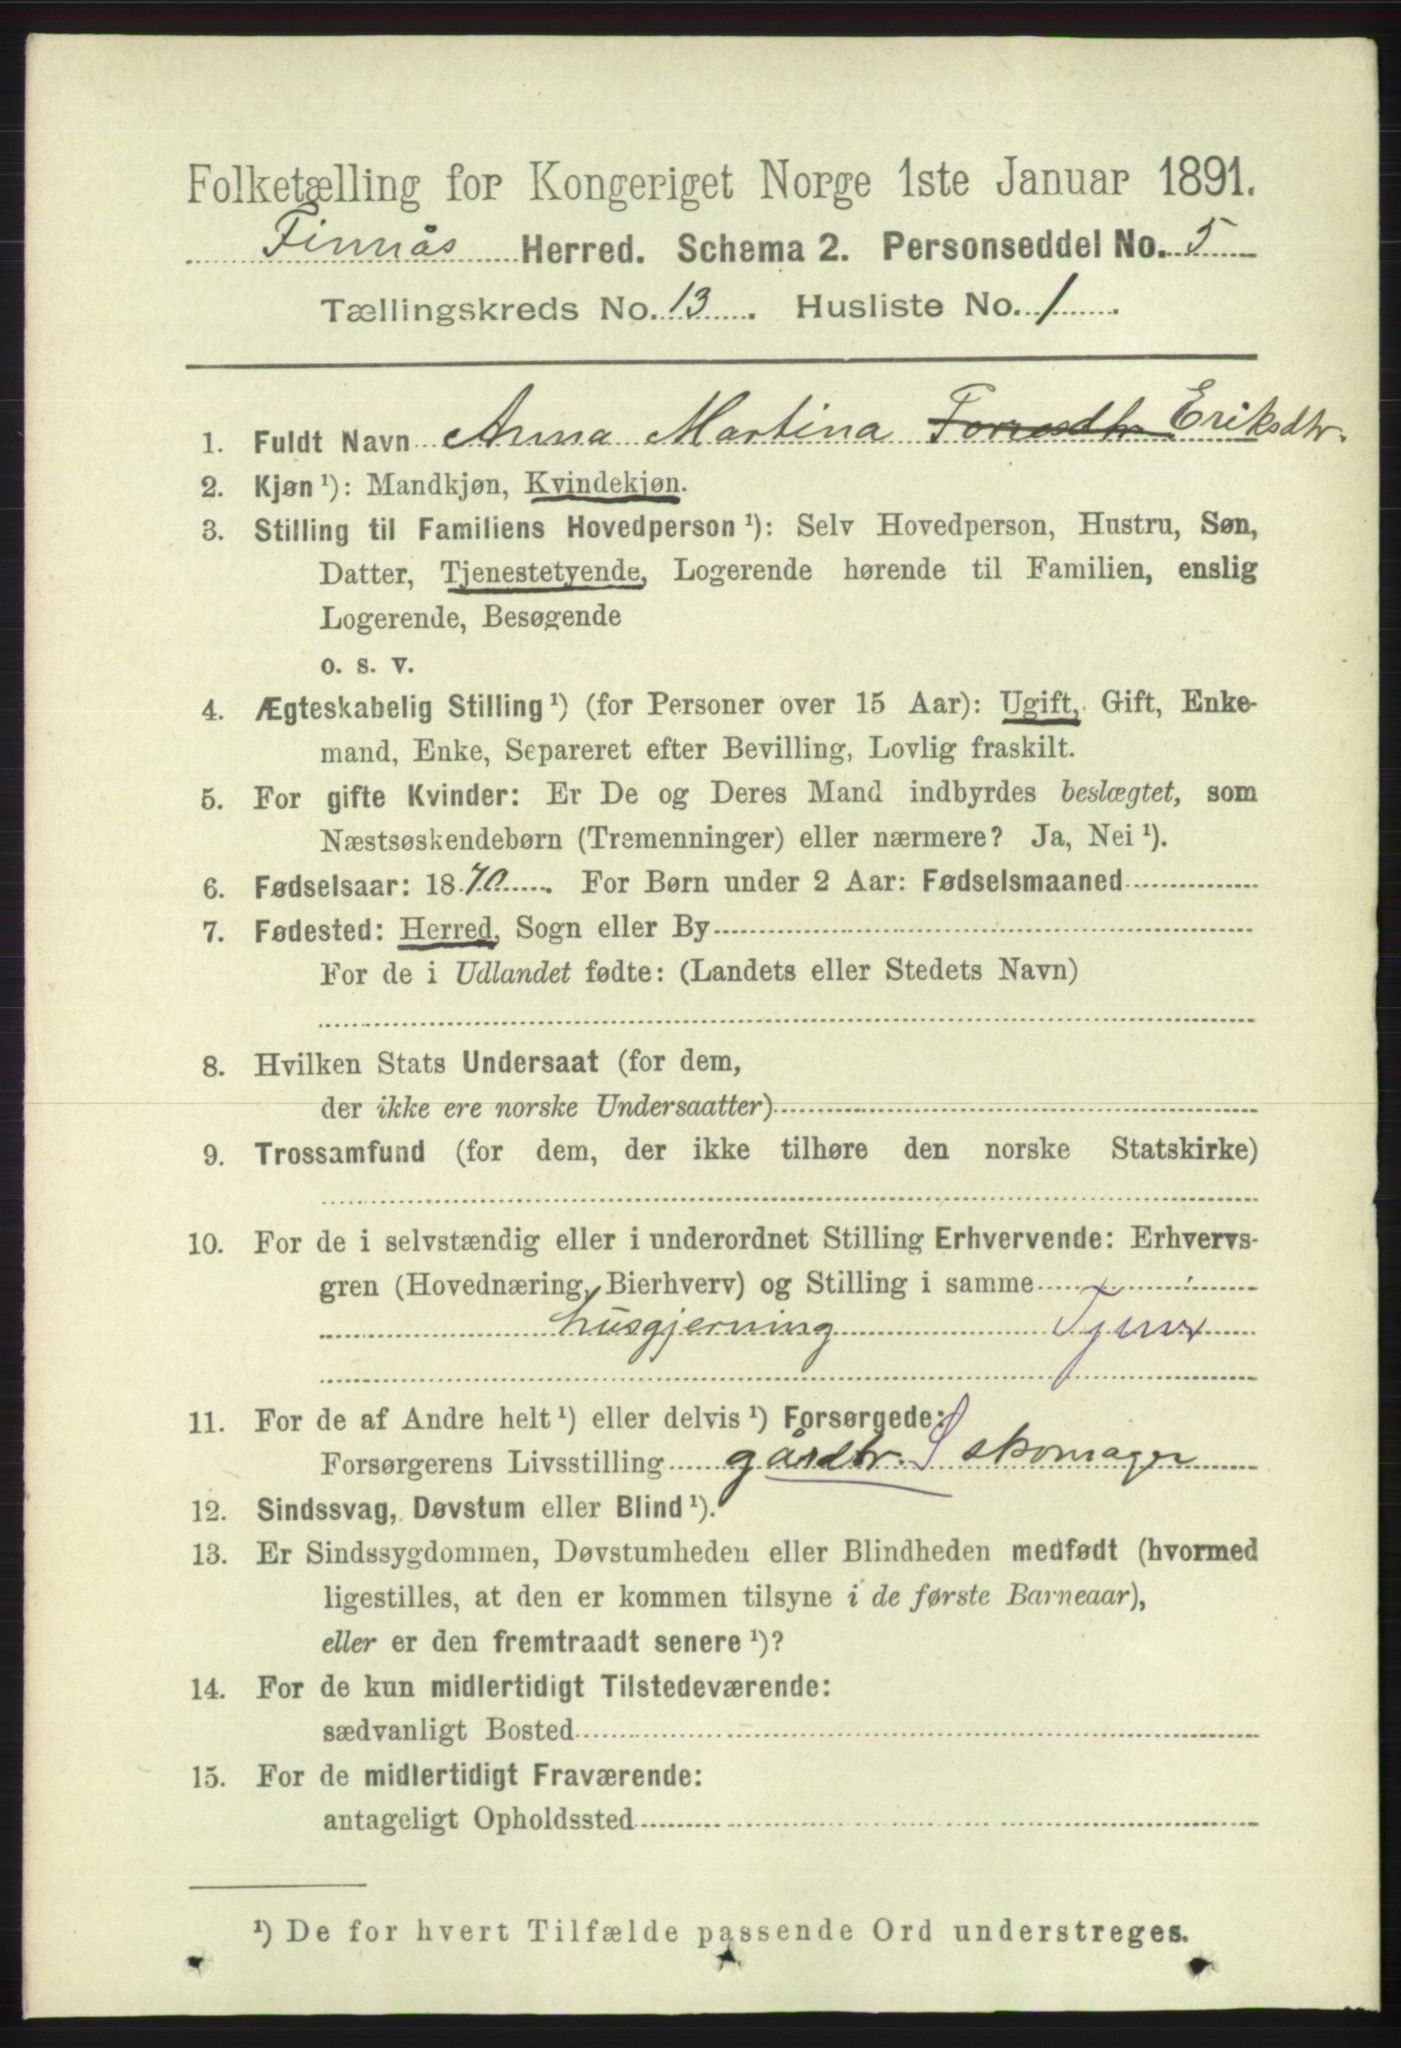 Folketælling for Kongeriget Norge 1ste Januar 1891.
Finnås Herred. Schema 2. Personseddel No. 5
Tællingskreds No. 13. Husliste No. 1.
1. Fuldt Navn Anna Martina Eriksdtr.
2. Kjøn ¹): Mandkjøn, Kvindekjøn.
3. Stilling til Familiens Hovedperson ¹): Selv Hovedperson, Hustru, Søn,
Datter, Tjenestetyende, Logerende hørende til Familien, enslig
Logerende, Besøgende
o. s. v.
4. Ægteskabelig Stilling ¹) (for Personer over 15 Aar): Ugift, Gift, Enke-
mand, Enke, Separeret efter Bevilling, Lovlig fraskilt.
5. For gifte Kvinder: Er De og Deres Mand indbyrdes beslægtet, som
Næstsøskendebørn (Tremenninger) eller nærmere? Ja, Nei ¹).
6. Fødselsaar: 1870. For Børn under 2 Aar: Fødselsmaaned
7. Fødested: Herred, Sogn eller By
For de i Udlandet fødte: (Landets eller Stedets Navn)
8. Hvilken Stats Undersaat (for dem,
der ikke ere norske Undersaatter)
9. Trossamfund (for dem, der ikke tilhøre den norske Statskirke)
10. For de i selvstændig eller i underordnet Stilling Erhvervende: Erhvervs-
gren (Hovednæring, Bierhverv) og Stilling i samme
husgjerning
11. For de af Andre helt ¹) eller delvis ¹) Forsørgede:
Forsørgerens Livsstilling gårdbr. Skomager
12. Sindssvag, Døvstum eller Blind ¹).
13. Er Sindssygdommen, Døvstumheden eller Blindheden medfødt (hvormed
ligestilles, at den er kommen tilsyne i de første Barneaar),
eller er den fremtraadt senere ¹)?
14. For de kun midlertidigt Tilstedeværende:
sædvanligt Bosted
15. For de midlertidigt Fraværende:
antageligt Opholdssted
¹) De for hvert Tilfælde passende Ord understreges.